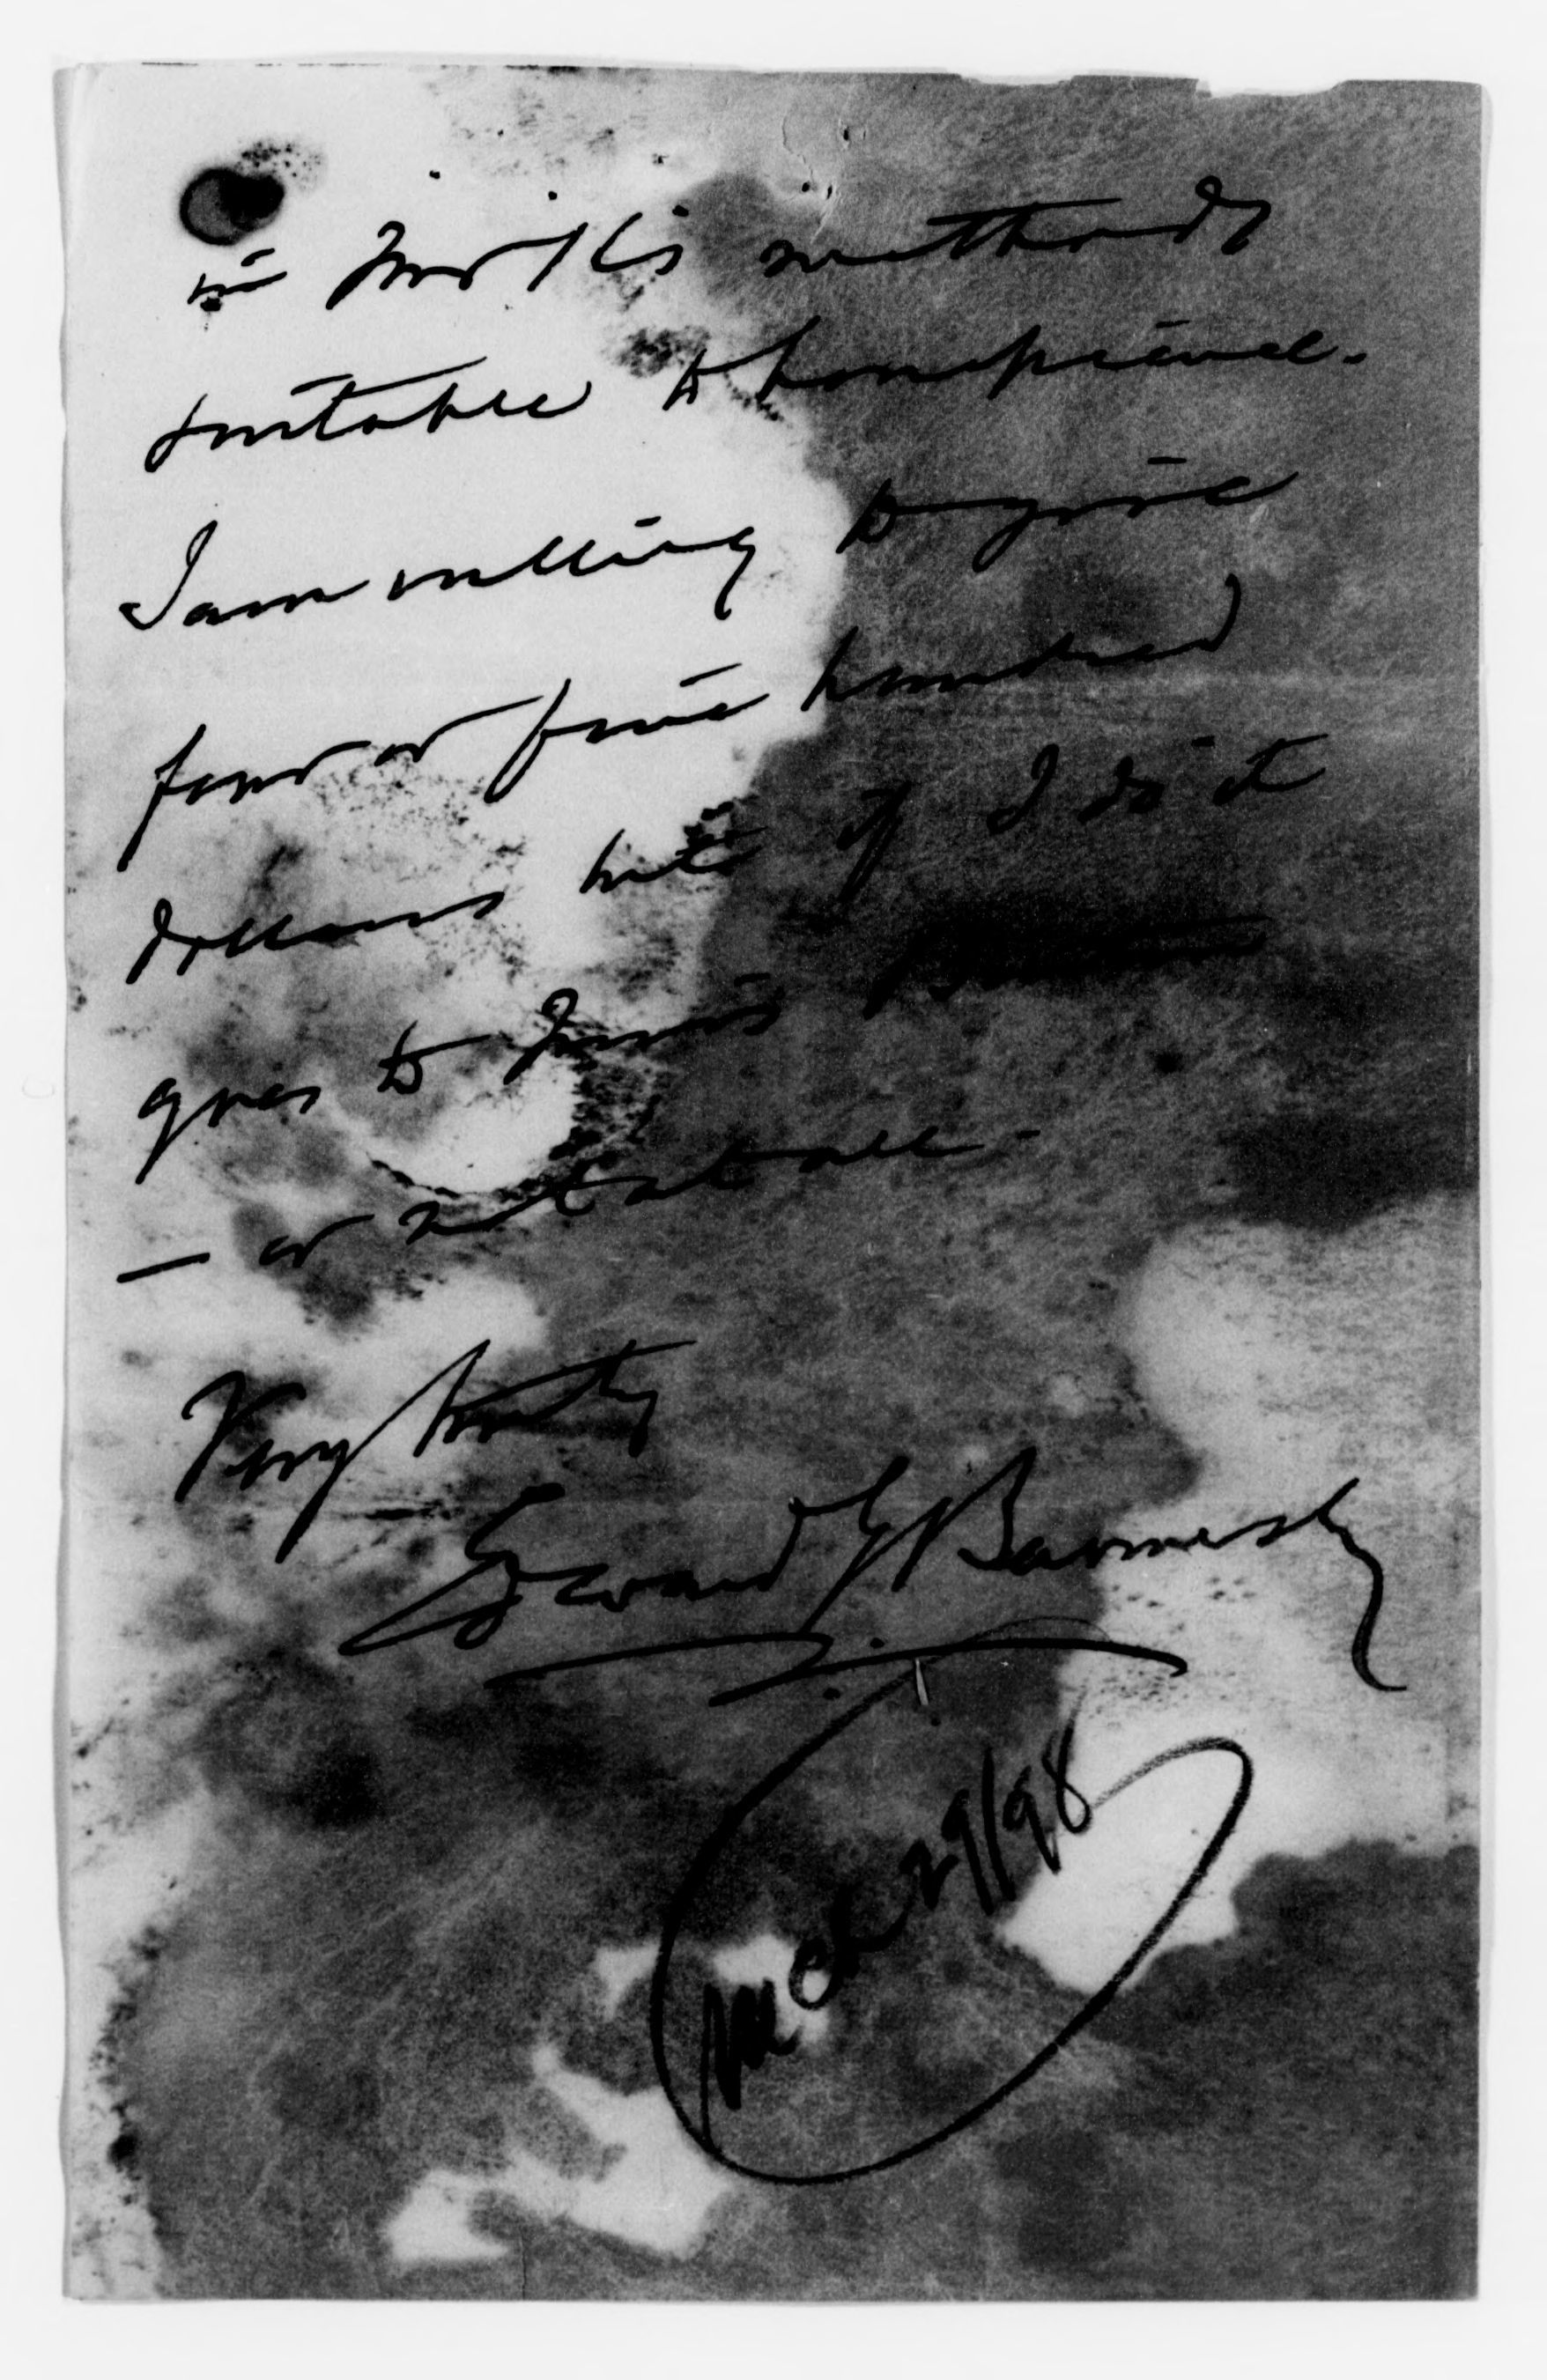 in his methods
suitable to
I am willing to give
four or five hundred
dollars but if I do it
goes to
— or not at all —
Very truly
Edward G
Mch 29/98